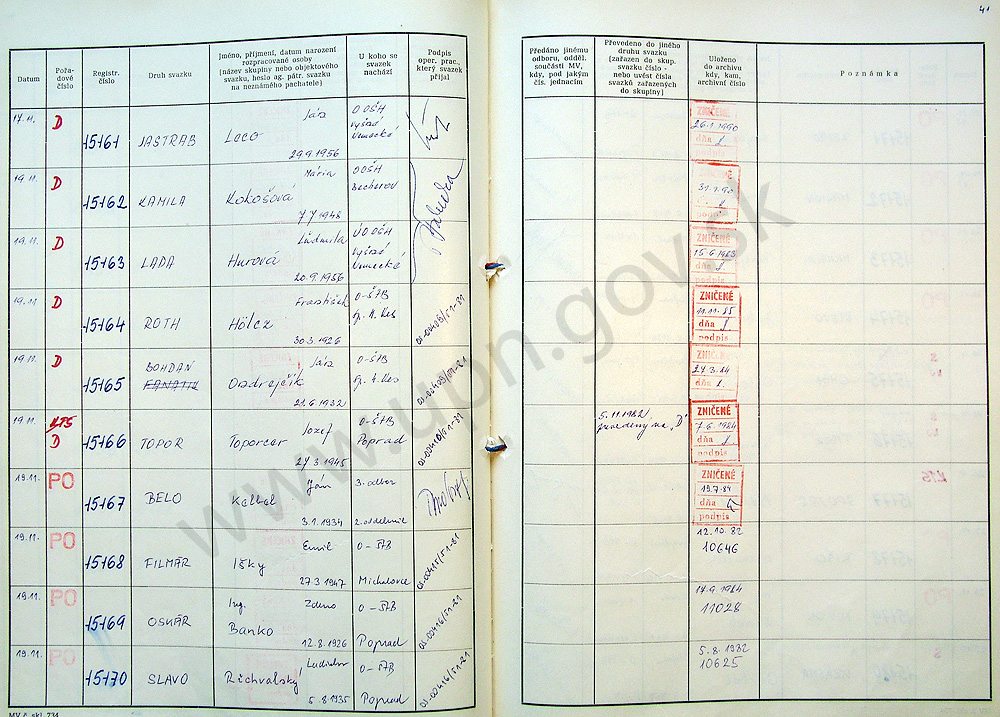 41
Datum
Pořa-
dové
číslo
Registr.
číslo
Druh svazku
Jméno, příjmení, datum narození
rozpracované osoby
(název skupiny nebo objektového
svazku, heslo ag. pátr. svazku
na neznámého pachatele)
U koho se
svazek
nachází
Podpis
oper. prac.,
který svazek
přijal
Předáno jinému
odboru, odděl.
součásti MV,
kdy, pod jakým
čís. jednacím
Převedeno do jiného
druhu svazku
(zařazen do skup.
svazku číslo -
nebo uvést čísla
svazků zařazených
do skupiny)
Uloženo
do archivu
kdy, kam,
archivní číslo
Poznámka
17.11. D 15161 JASTRAB Leco Ján
29.9.1956
OOŠH
Vyšné
Nemecké
ZNIČENÉ
26.1.1990
dňa
podpis
19.11. D 15162 KAMILA Kokošová Mária
7.7.1948
OOŠH
Becherov
31.1.90
19.11. D 15163 LADA Hurová Ľudmila
20.9.1956
OOŠH
Vyšné
Nemecké
ZNIČENÉ
15.6.1983
dňa
podpis
19.11 D 15164 ROTH Hölcz František
30.3.1926
O-ŠtB
ZNIČENÉ
11.11.85
dňa
podpis
19.11. D 15165 BOHDAŇ
FANATIK
Ondrejčík Ján
21.6.1932
O-ŠtB
dňa
19.11 KTS
D 15166 TOPOR Toporcer Jozef
27.3.1945
O-ŠtB
Poprad
5.11.1982
zavedený na „D“
ZNIČENÉ
7.6.1984
dňa
podpis
19.11. PO 15167 BELO Kellel Ján
3.1.1934
3. odbor
2. oddelenie
ZNIČENÉ
19.7.84
dňa
podpis
19.11. PO 15168 FILMÁR Išky Emil
27.3.1947
O-ŠtB
Michalovce
12.10.82
10646
19.11. PO 15169 OSKÁR Ing. Zdeno
Banko
12.8.1926
O-ŠtB
Poprad
17.9.1984
11028
19.11. PO 15170 SLAVO Richvalský Ladislav
5.8.1935
O-ŠtB
Poprad
5.8.1982
10625
MV č. skl. 734
www.upn.gov.sk